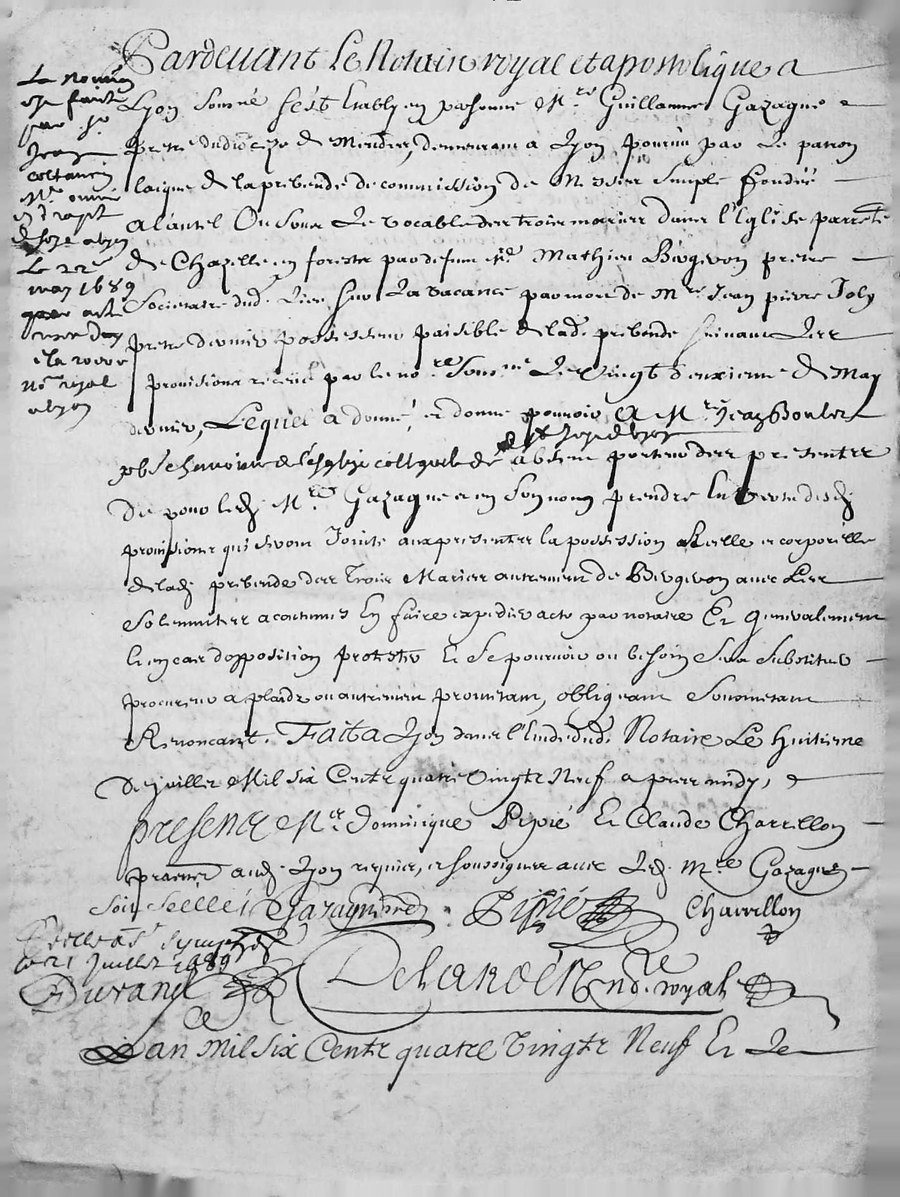 Pardevant Le Notaire royal et apostolique a
Lyon Soussné s'est Estably en personne Mre Guillaume Gazagne
Pretre du diocèze de Mende, demeurant a Lyon pourvu par Le patron
laique de la prebende de commission de Messes simple fondée
a l'autel Ou Sous Le vocable des trois maries dans l'Eglise
de Chazelle en forests par defunt Mre Mathieu Bergeron pretre
Societaire dud. Lieu Sur La vacance par mort de Mre Jean pierre Joly
pretre dernier possesseur paisible de lad. prebende suivant Les
provisions par le nore Soussné Le Vingt deuxieme de May
dernier, Lequel a donné, et donne pouvoir A Mre Jean Boulet
de St
de l'eglise absent porteur des presentes
de pour led. Mre Gazagne et en Son nom prendre en vertu desd.
provisions qui seront Jointes aux presentes la possession Reelle et corporelle
de lad. prebende des Trois Maries autrement de Bergeron avec Les
Solemnites acoutumés En faire expedier acte par notaire Et generalement
en cas d'opposition protester Et Se pourvoir ou besoin Sera Substituer
procureur a plaids ou autrement promettant, obligeant Soumettant
Renoncant. Fait a Lyon dans l'Etude dud. Notaire Le huitieme
de juillet Mil six Cents quatre Vingts Neuf apres midy,
presence Mre Dominique Pipié Et Claude Charrillon
praticiens aud. Lyon requis, et soussignes avec Led. Mre Gazagne
Soit Scellé Gazagne Pipié Charrillon
Delanoérie no. royal
Lan Mil Six Cents quatre Vingts Neuf Et Le
La nomin
est faite
par Sr
Jean
a Lyon
Le 22e
may 1689
par acte
nore royal
a lyon
Scellé a St Symph
le 21 Juillet 1689
Durand